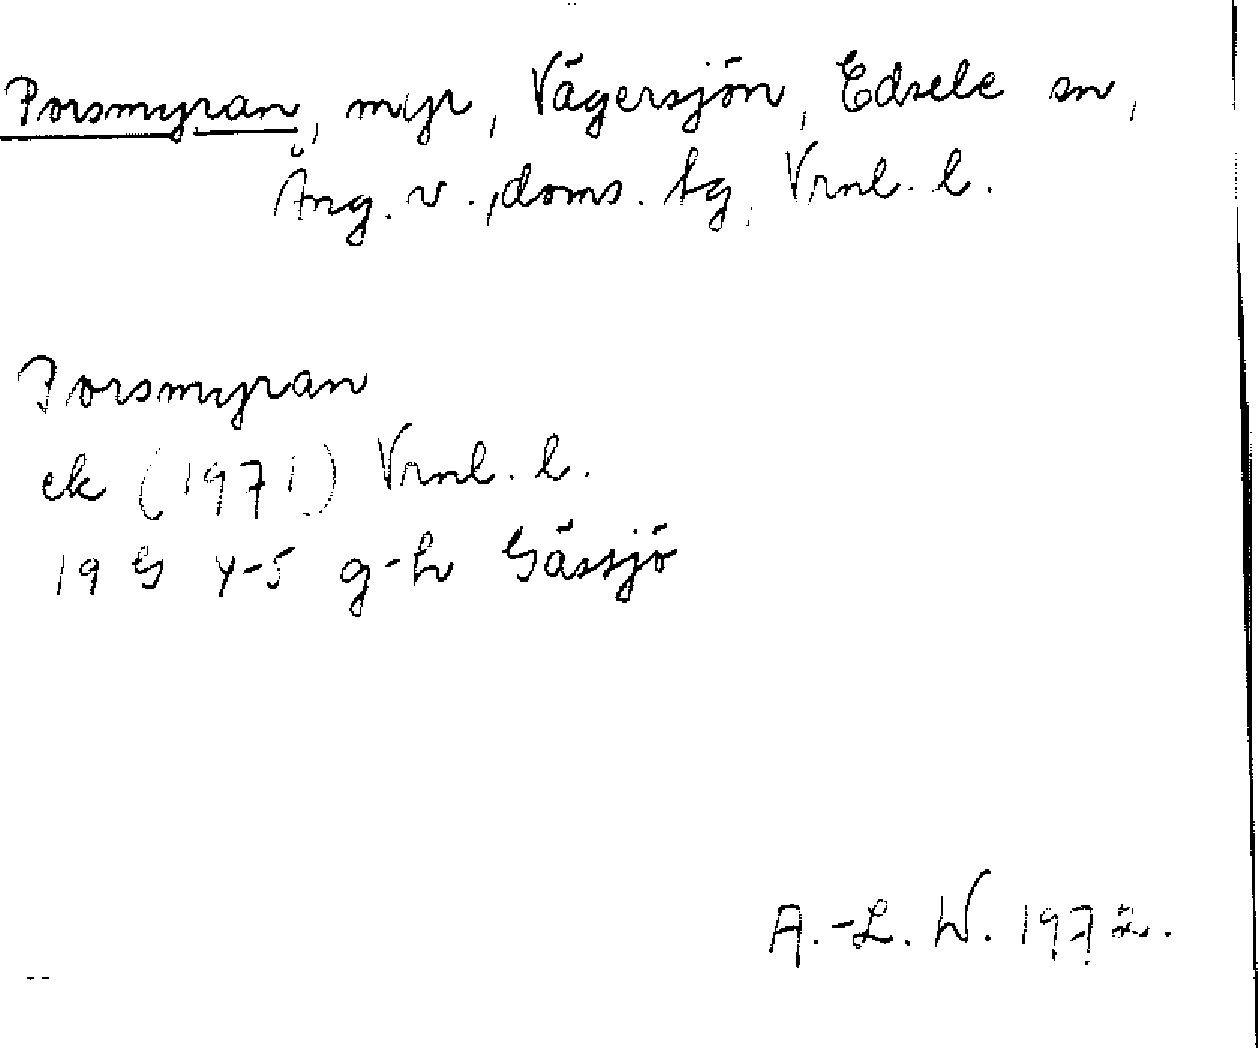 Porsmyran, myr, Vägersjön, Edsele sn,
Ång. v., doms. tg, Vrnl. l.
Porsmyran
ek (1971) Vrnl. l.
19 G 4-5 g-h Gåssjö
A.-L. W. 1972.